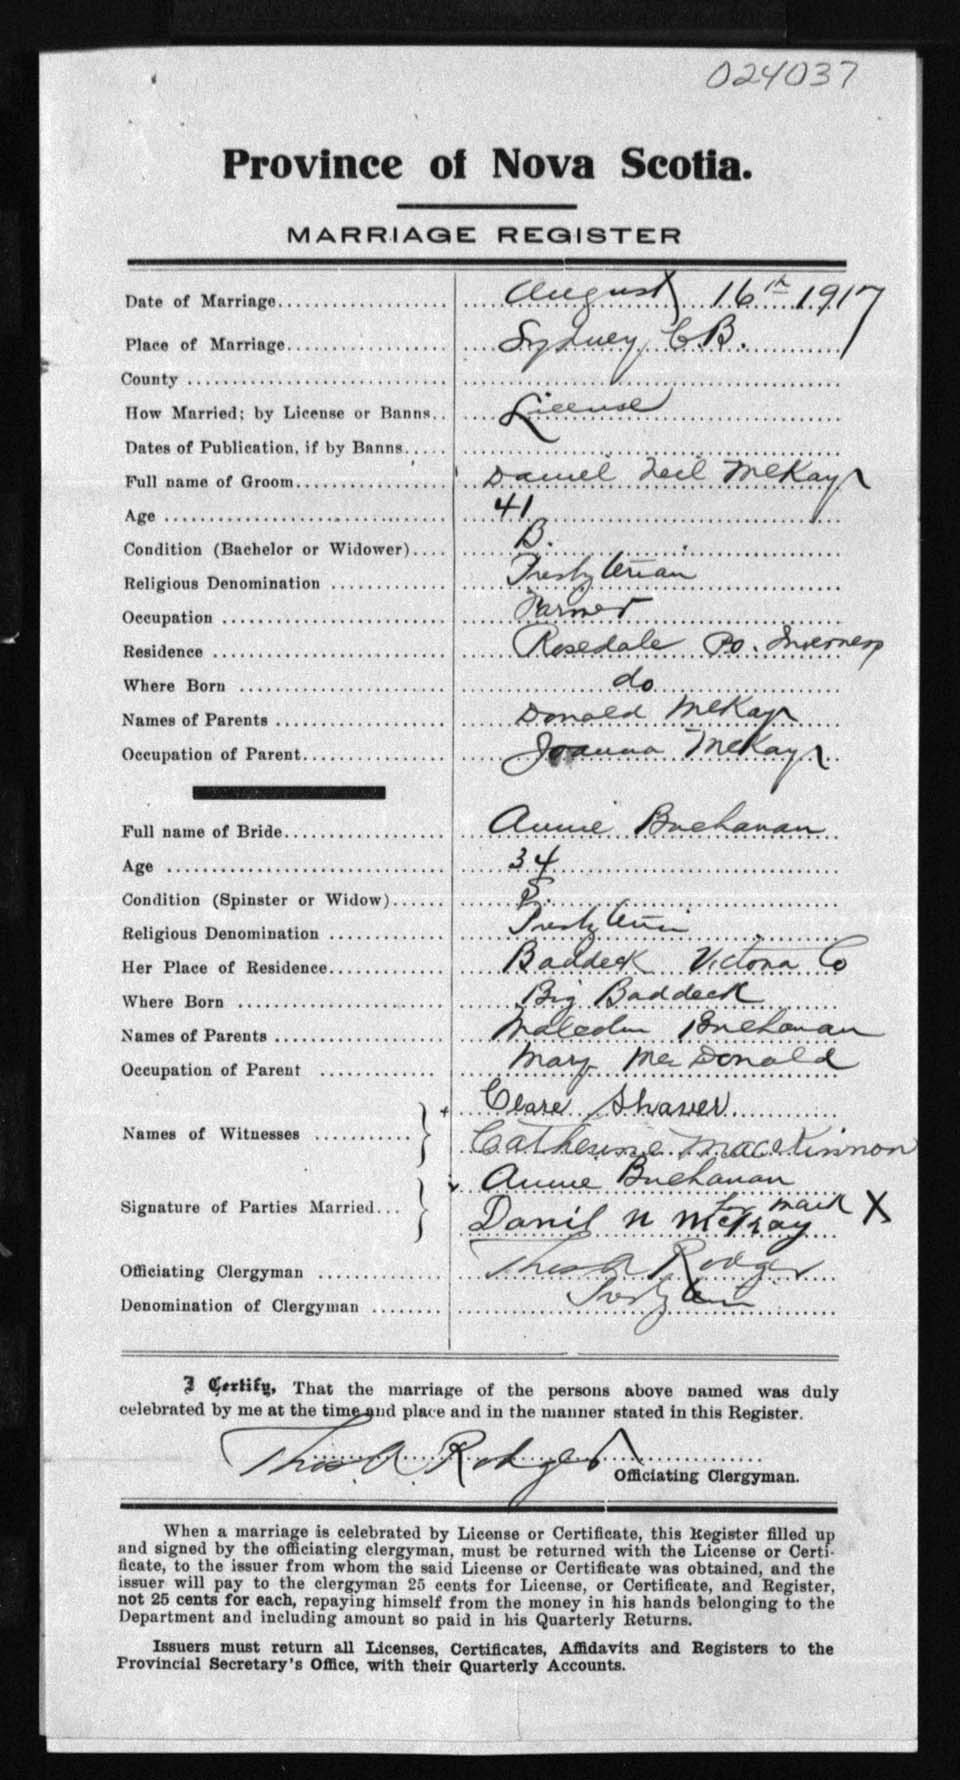 024037
Province of Nova Scotia.
MARRIAGE REGISTER
Date of Marriage.................... August 16th 1917
Place of Marriage................... Sydney C.B.
County ............................
How Married; by License or Banns.. License
Dates of Publication, if by Banns.....
Full name of Groom.................. Daniel Neil McKay
Age ............................... 41
Condition (Bachelor or Widower).... B.
Religious Denomination ............. Presbyterian
Occupation ......................... Farmer
Residence .......................... Rosedale Po. Inverness
Where Born ........................ do
Names of Parents ................... Donald McKay
Occupation of Parent................ Joanna McKay
Full name of Bride.................. Annie Buchanan
Age ............................... 34
Condition (Spinster or Widow)...... S.
Religious Denomination ............. Presbyterian
Her Place of Residence.............. Baddeck Victoria Co
Where Born ........................ Big Baddeck
Names of Parents ................... Malcolm Buchanan
Occupation of Parent ............. Mary McDonald
Names of Witnesses ........... Clare Shaver
Catherine MacKinnon
Signature of Parties Married... Annie Buchanan
Danil N McKay mark X
Officiating Clergyman ............. Thos A Rodger
Denomination of Clergyman ........
I Certify, That the marriage of the persons above named was duly
celebrated by me at the time and place and in the manner stated in this Register.
Thos. A Rodger
Officiating Clergyman.
When a marriage is celebrated by License or Certificate, this Register filled up
and signed by the officiating clergyman, must be returned with the License or Certi-
ficate, to the issuer from whom the said License or Certificate was obtained, and the
issuer will pay to the clergyman 25 cents for License, or Certificate, and Register,
not 25 cents for each, repaying himself from the money in his hands belonging to the
Department and including amount so paid in his Quarterly Returns.
Issuers must return all Licenses, Certificates, Affidavits and Registers to the
Provincial Secretary's Office, with their Quarterly Accounts.